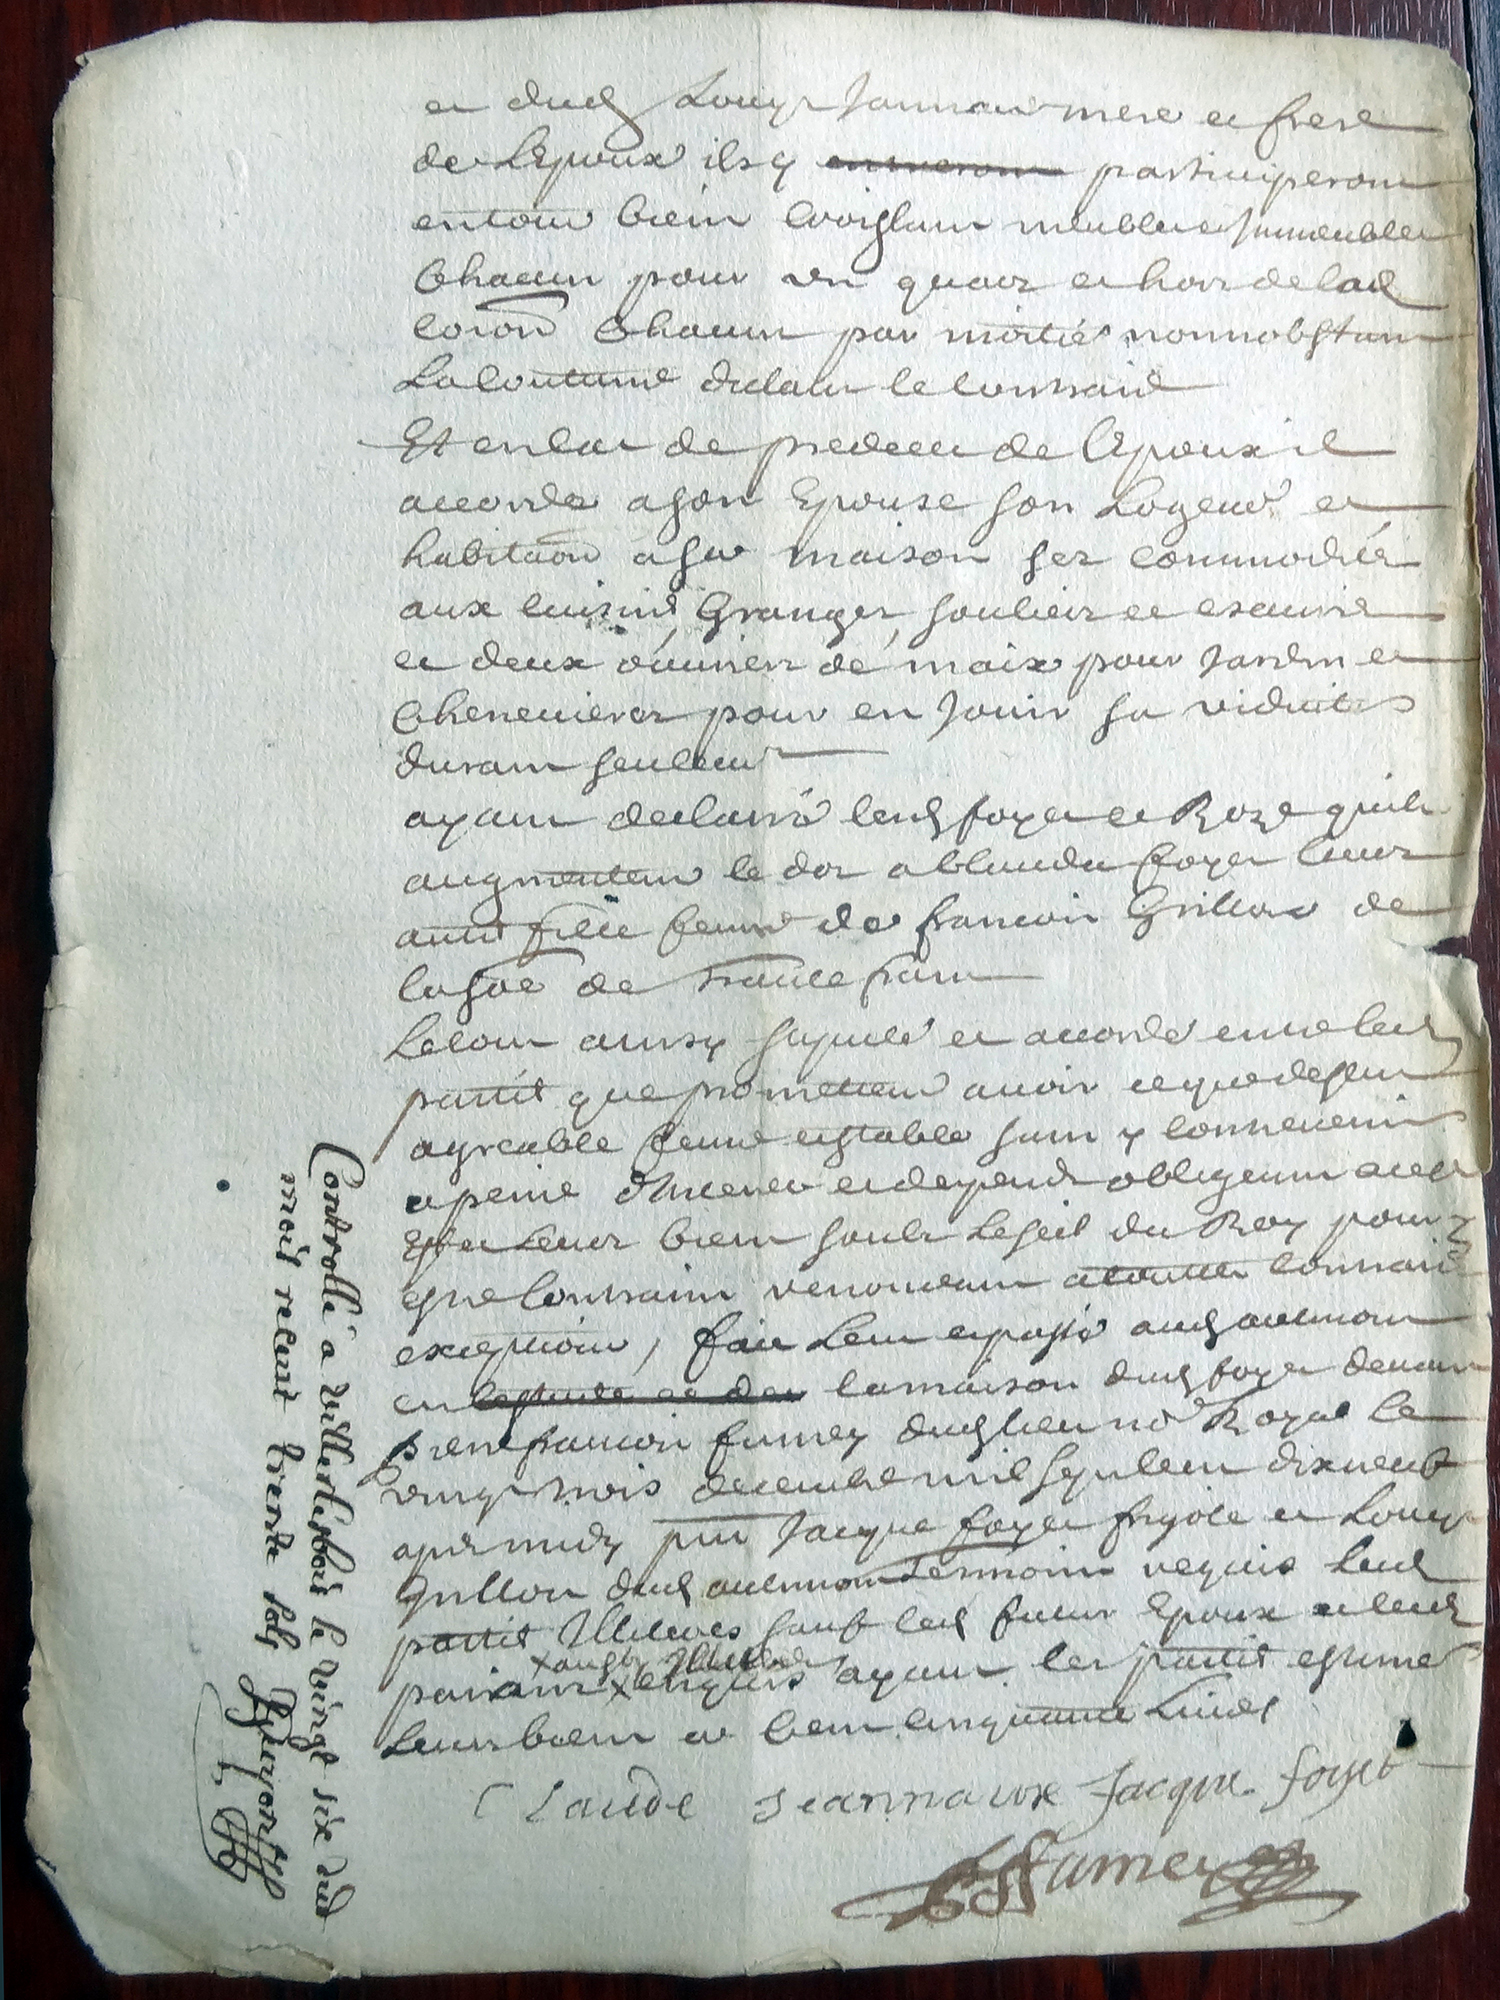 et dud Louys Jannaux mere et frere
de Lepoux ils y entreront participeront
en tout bien croissant meubles immeubles
Chacun pour un quart et hors de lad
coion Chacun par moitié nonnobstant
La Coutume du lieu le contraire
Et en cas de predeces de lepoux il
accorde a son Epouse son Logemt et
habitaon a sa maison ses commodités
aux cuisine, Granges, souliers et escuirie
et deux ouvrées de maix pour Jardin et
Chenevieres pour en Jouir sa viduité
durant seulemt
ayant declaré lesd foyet et Roze quils
augmentent le dot a Clauda foyet leur
autre fille femme de francois Grillot de
la soe de trante frans
Le tout ainsy stipulé et accordé entre lesd
parties que promettent avoir ce que dessus
agreable ferme et stable sans y contrevenir
a peine d'Interest et depend obligeant a cet
effet Leurs biens soubs Le scel du Roy pour
estre Contraint renonceant a toutes contraires
exceptions, fait Leu et passé aud
en lestude et de la maison dud foyet devant
francois fumey dud lieu nore Royal le
vingt trois decembre mil sept cent dix neuf
apres midy pnt Jacque foyet et Louys
Grillon dud temoins requis Lesd
parties Illiteres sauf led futur Epoux et lesd
× aussy Illiteres
× enquis ayant les parties estimé
Leurs biens a Cent cinquante Livres
Claude Jeannaux Jacque foyet
F Fumey
Controllé a Villersfarlay le vingt six dud
mois receut trente sols